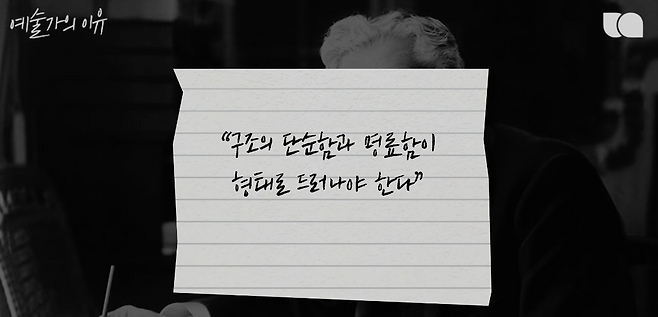 예술가의 이유
“구조의 단순함과 명료함이
형태로 드러나야 한다”